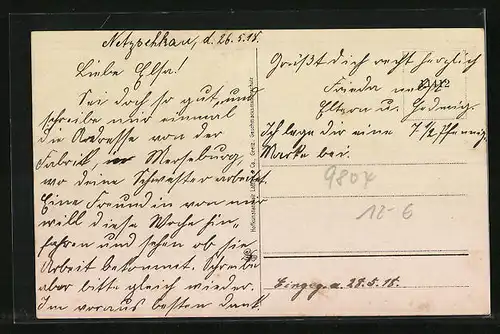 Netzschkau, d. 26.5.18.
Liebe Elsa!
Sei doch so gut, und
schreibe mir einmal
die Adresse von der
Fabrik, in Merseburg,
wo deine Schwester arbeitet.
Eine Freundin von mir
will diese Woche hin-
fahren und sehen ob sie
Arbeit bekommt. Schreibe
aber bitte gleich wieder.
Im voraus besten Dank.
Grüßt dich recht herzlich
Frieda nebst
Eltern u. Hedwig.
Ich lege dir eine 7 1/2 Pfennig-
Marke bei.
9804
12-6
Eingeg. a. 28.5.18.